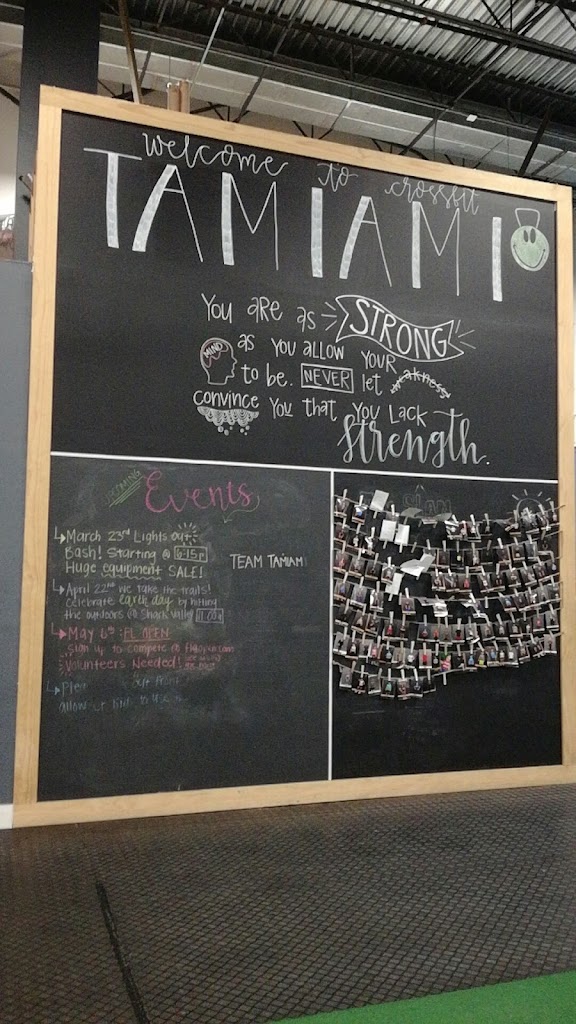 welcome to crossfit
TAMIAMI
You are as STRONG
MIND
as you allow your
to be. NEVER let weakness
convince you that you lack
strength.
UPCOMING
Events
March 23rd Lights out
Bash! Starting @ 6:15P
Huge equipment SALE!
TEAM TAMIAMI
April 22nd we take the trails!
celebrate earth day by hitting
the outdoors @ Shark Valley
May 6th: FL OPEN
sign up to compete @
Volunteers Needed!